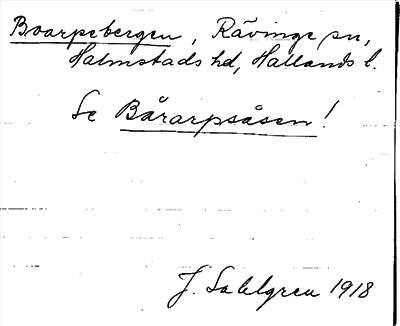 Boarpsbergen, Rävinge sn,
Halmstads hd, Hallands l.
Se Bårarpsåsen!
J. Sahlgren 1918